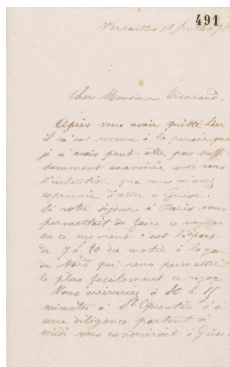 491
Versailles 16
Cher Monsieur
Après vous avoir quitté hier
il m'est venu à la pensée que
je n'avais peut être pas suffi
samment examiné avec vous
l'intention que vous m'avez
exprimée d'aller à Guise
si votre séjour à Paris vous
permettait de faire ce voyage
en ce moment: c'est départ
de 7 à 20 du matin à la gare
du Nord qui vous permettrait
le plus facilement ce voyage
Vous arriveriez à 10 h 15
minutes à St Quentin d'où
une diligence partant à
midi vous conduirait à Guise